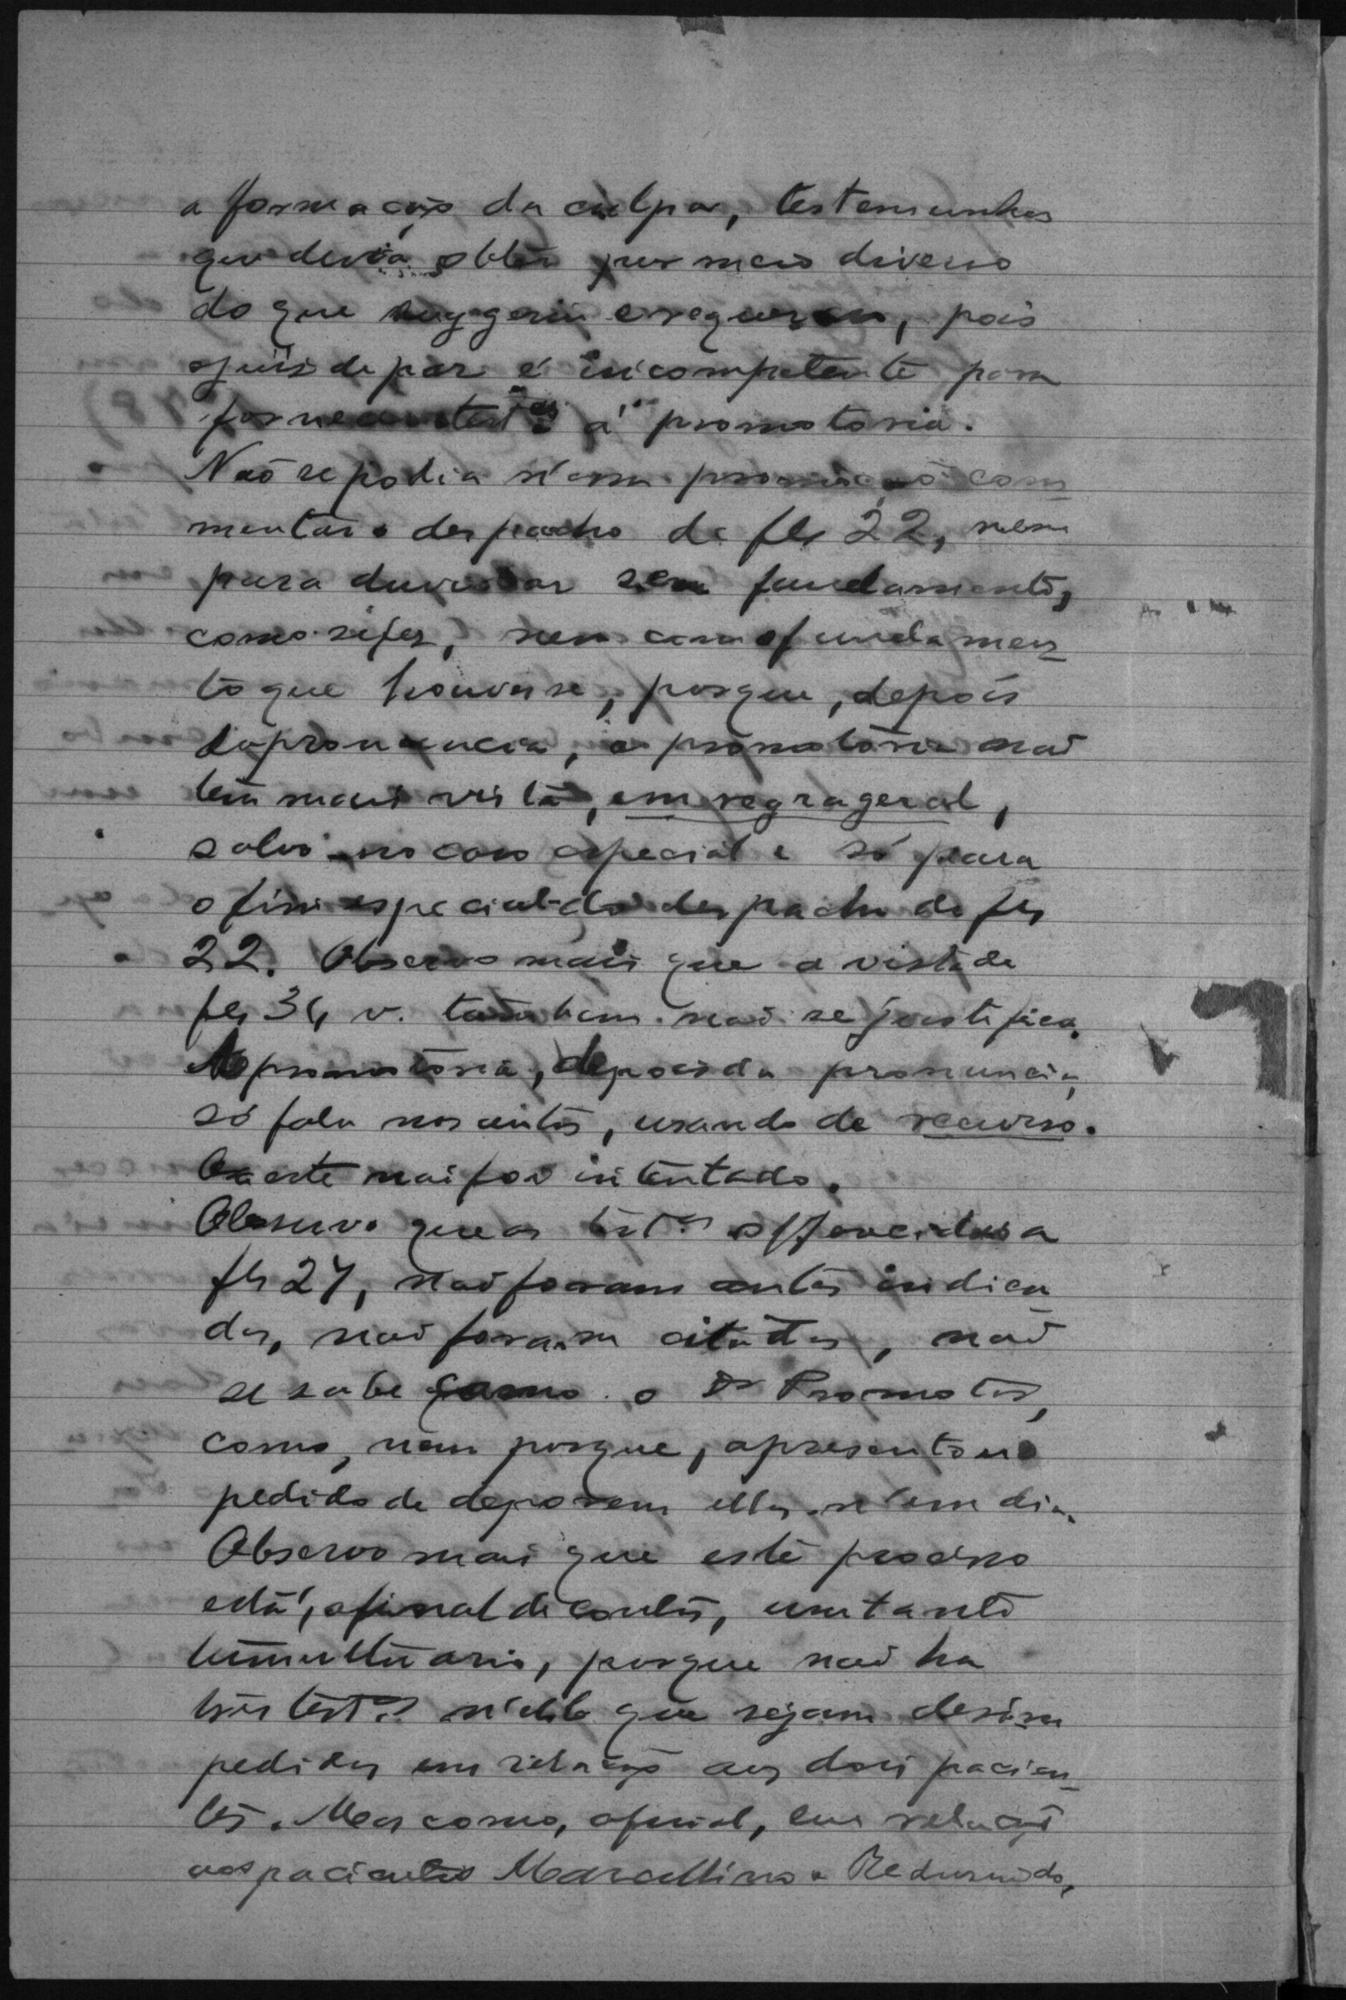 a formação da culpa, testemunhas
que devia obter por meio diverso
do que suggeriu e requereu, pois
o juiz de paz é incompetente para
fornecer test.as á promotoria.
Não se podia n'essa promoção com-
mentar o despacho de fls 22, nem
para duvidar sem fundamento,
como se fez, nem com o fundamen-
to que houvesse, porque, depois
da pronuncia, a promotoria não
tem mais vista, em regra geral,
salvo no caso especial e só para
o fim especial do despacho de fls
22. Observo mais que a vista de
fls 34 v. tambem não se justifica.
A promotoria, depois da pronuncia,
só fala nos autos, usando de recurso.
Ora este não foi intentado.
Observo que as test.as offerecidas a
fls 27, não foram antes indica
das, não foram citadas, não
se sabe como o Dr Promotor,
como, nem porque, apresentou o
pedido de deporem ellas n'esse dia.
Observo mais que este processo
está, afinal de contas, um tanto
tumultuario, porque não ha
tres test.as n'elle que sejam desim
pedidas em relação aos dois pacien-
tes. Mas como, afinal, em relação
aos pacientes Marcellino e Redusindo,